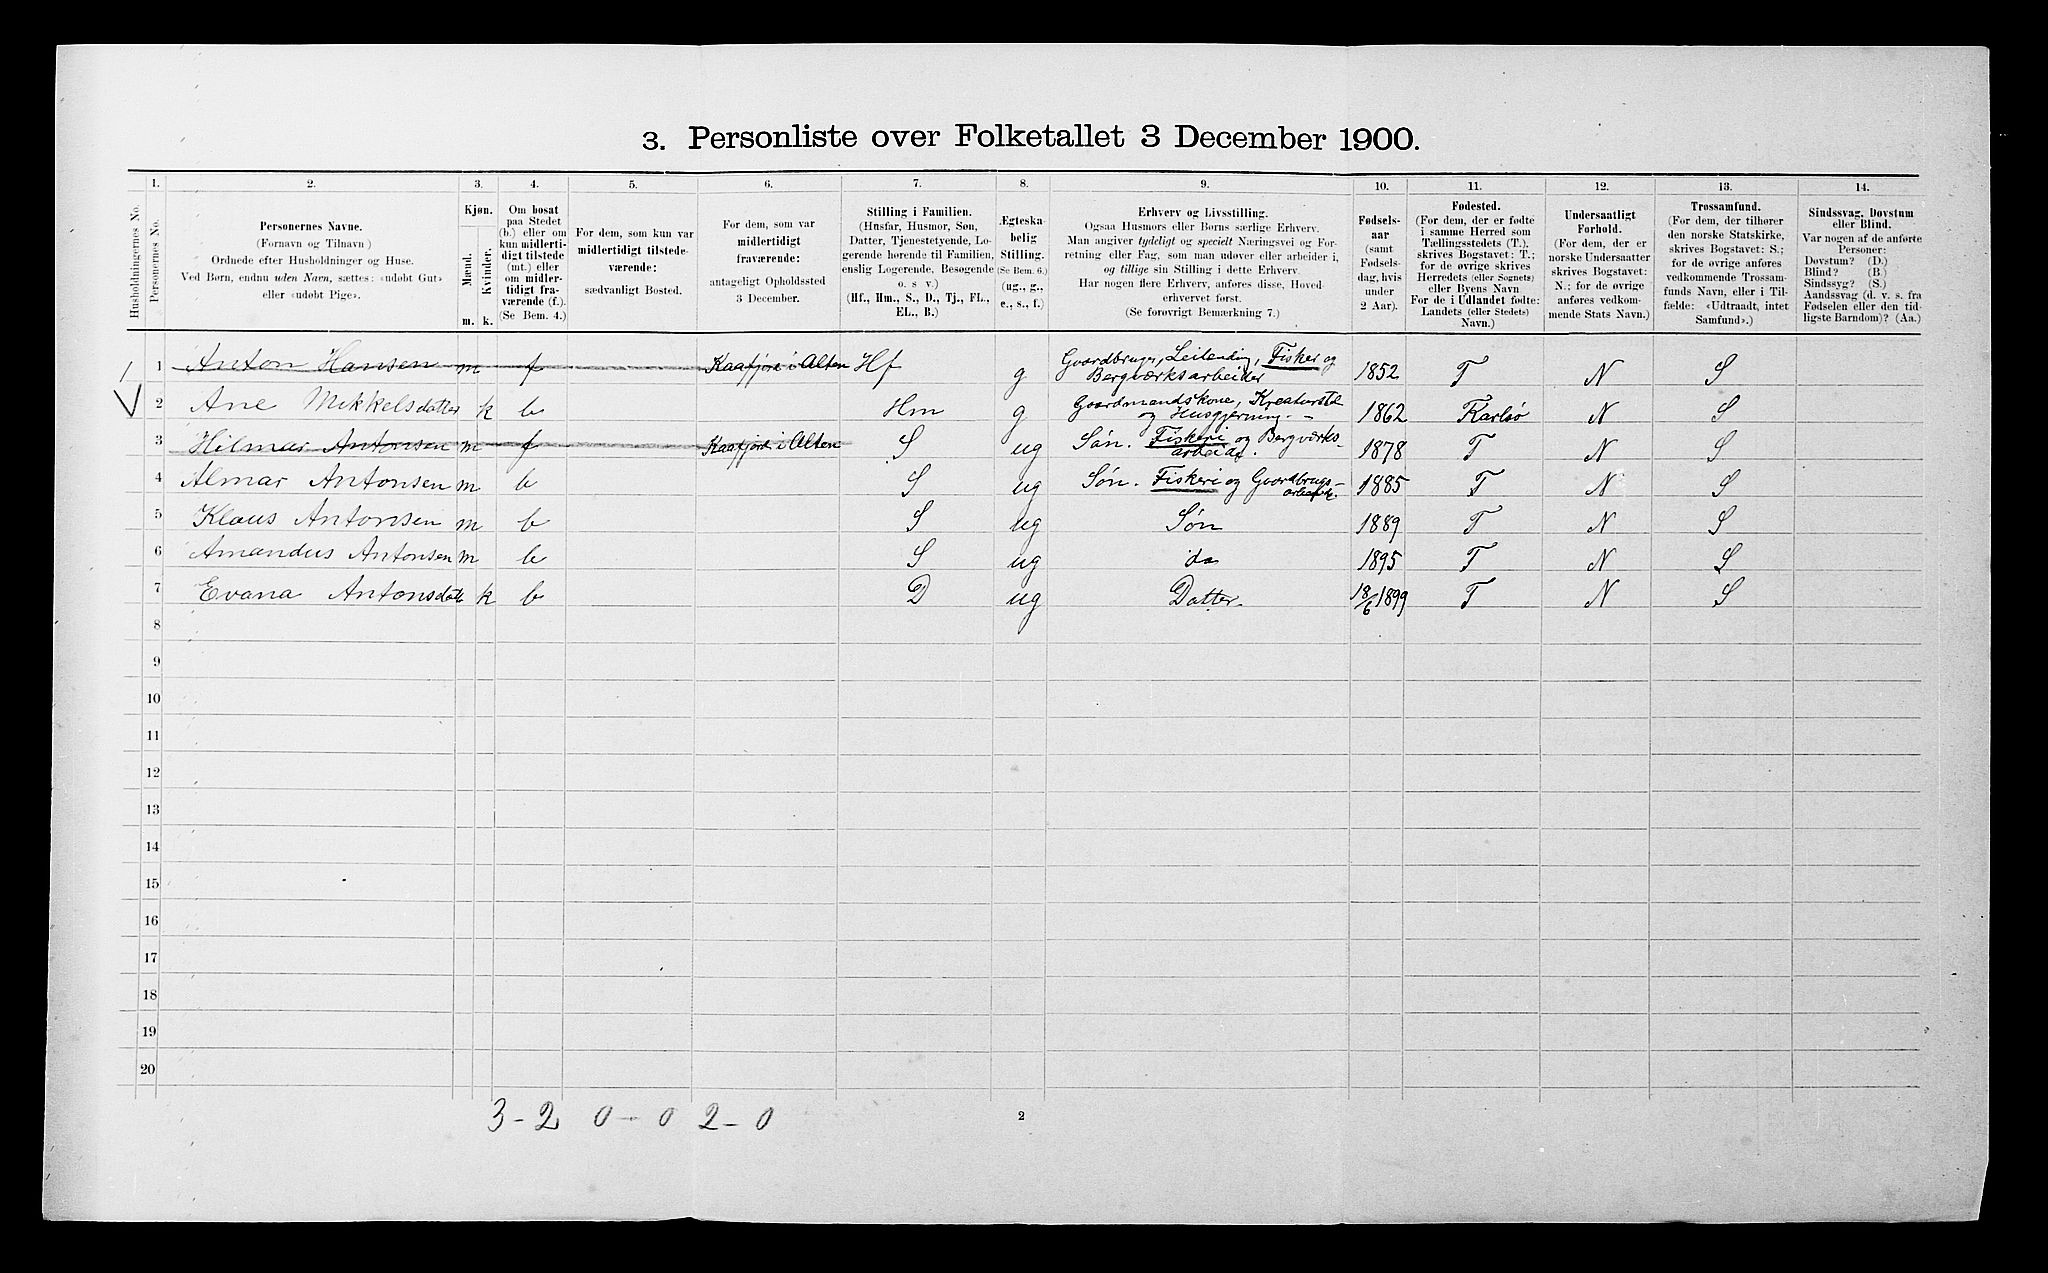 3. Personliste over Folketallet 3 December 1900.
1. 2. 3. 4. 5. 6. 7. 8. 9. 10. 11. 12. 13. 14.
Husholdningernes No.
Personernes No.
Personernes Navne.
(Fornavn og Tilnavn)
Ordnede efter Husholdninger og Huse.
Ved Børn, endnu uden Navn, sættes: «udøbt Gut»
eller «udøbt Pige».
Kjøn.
Mænd.
Kvinder.
m. k.
Om bosat
paa Stedet
(b.) eller om
kun midlerti-
digt tilstede
(mt.) eller
om midler-
tidigt fra-
værende (f.)
(Se Bem. 4.)
For dem, som kun var
midlertidigt tilstede-
værende:
sædvanligt Bosted.
For dem, som var
midlertidigt
fraværende:
antageligt Opholdssted
3 December.
Stilling i Familien.
(Husfar, Husmor, Søn,
Datter, Tjenestetyende, Lo-
gerende hørende til Familien,
enslig Logerende, Besøgende
o. s v.)
(Hf., Hm., S., D., Tj., FL.,
EL., B.)
Ægteska-
belig
Stilling.
(Se Bem. 6.)
(ug., g.,
e., s., f.)
Erhverv og Livsstilling.
Ogsaa Husmors eller Børns særlige Erhverv.
Man angiver tydeligt og specielt Næringsvei og For-
retning eller Fag, som man udøver eller arbeider i,
og tillige sin Stilling i dette Erhverv.
Har nogen flere Erhverv, anføres disse, Hoved-
erhvervet først.
(Se forøvrigt Bemærkning 7.)
Fødsels-
aar
(samt
Fødsels-
dag, hvis
under
2 Aar).
Fødested.
(For dem, der er fødte
i samme Herred som
Tællingsstedets (T.),
skrives Bogstavet: T.;
for de øvrige skrives
Herredets (eller Sognets)
eller Byens Navn
For de i Udlandet fødte:
Landets (eller Stedets)
Navn.)
Undersaatligt
Forhold.
(For dem, der er
norske Undersaatter
skrives Bogstavet:
N.; for de øvrige
anføres vedkom-
mende Stats Navn.)
Trossamfund.
(For dem, der tilhører
den norske Statskirke,
skrives Bogstavet: S.;
for de øvrige anføres
vedkommende Trossam-
funds Navn, eller i Til-
fælde: «Udtraadt, intet
Samfund».)
Sindssvag, Døvstum
eller Blind.
Var nogen af de anførte
Personer:
Døvstum? (D.)
Blind? (B.)
Sindssyg? (S.)
Aandssvag (d. v. s. fra
Fødselen eller den tid-
ligste Barndom)? (Aa.)
1 Anton Hansen m f Kaafjord i Alten Hf g Gaardbruger, Leilending, Fisker og
Bergværksarbeider 1852 T N S
2 Ane Mikkelsdatter k b Hm g Gaardmandskone, Kreaturstel
og Husgjerning. 1862 Karlsø N S
3 Hilmar Antonsen m f Kaafjord i Alten S ug Søn. Fiskeri og Bergværks-
arbeide. 1878 T N S
4 Almar Antonsen m b S ug Søn. Fiskeri og Gaardbrugs-
arbeide. 1885 T N S
5 Klaus Antonsen m b S ug Søn 1889 T N S
6 Amandus Antonsen m b S ug do 1895 T N S
7 Evana Antonsdatt k b D ug Datter. 18/6 1899 T N S
8
9
10
11
12
13
14
15
16
17
18
19
20
3-2 0-0 2-0
2